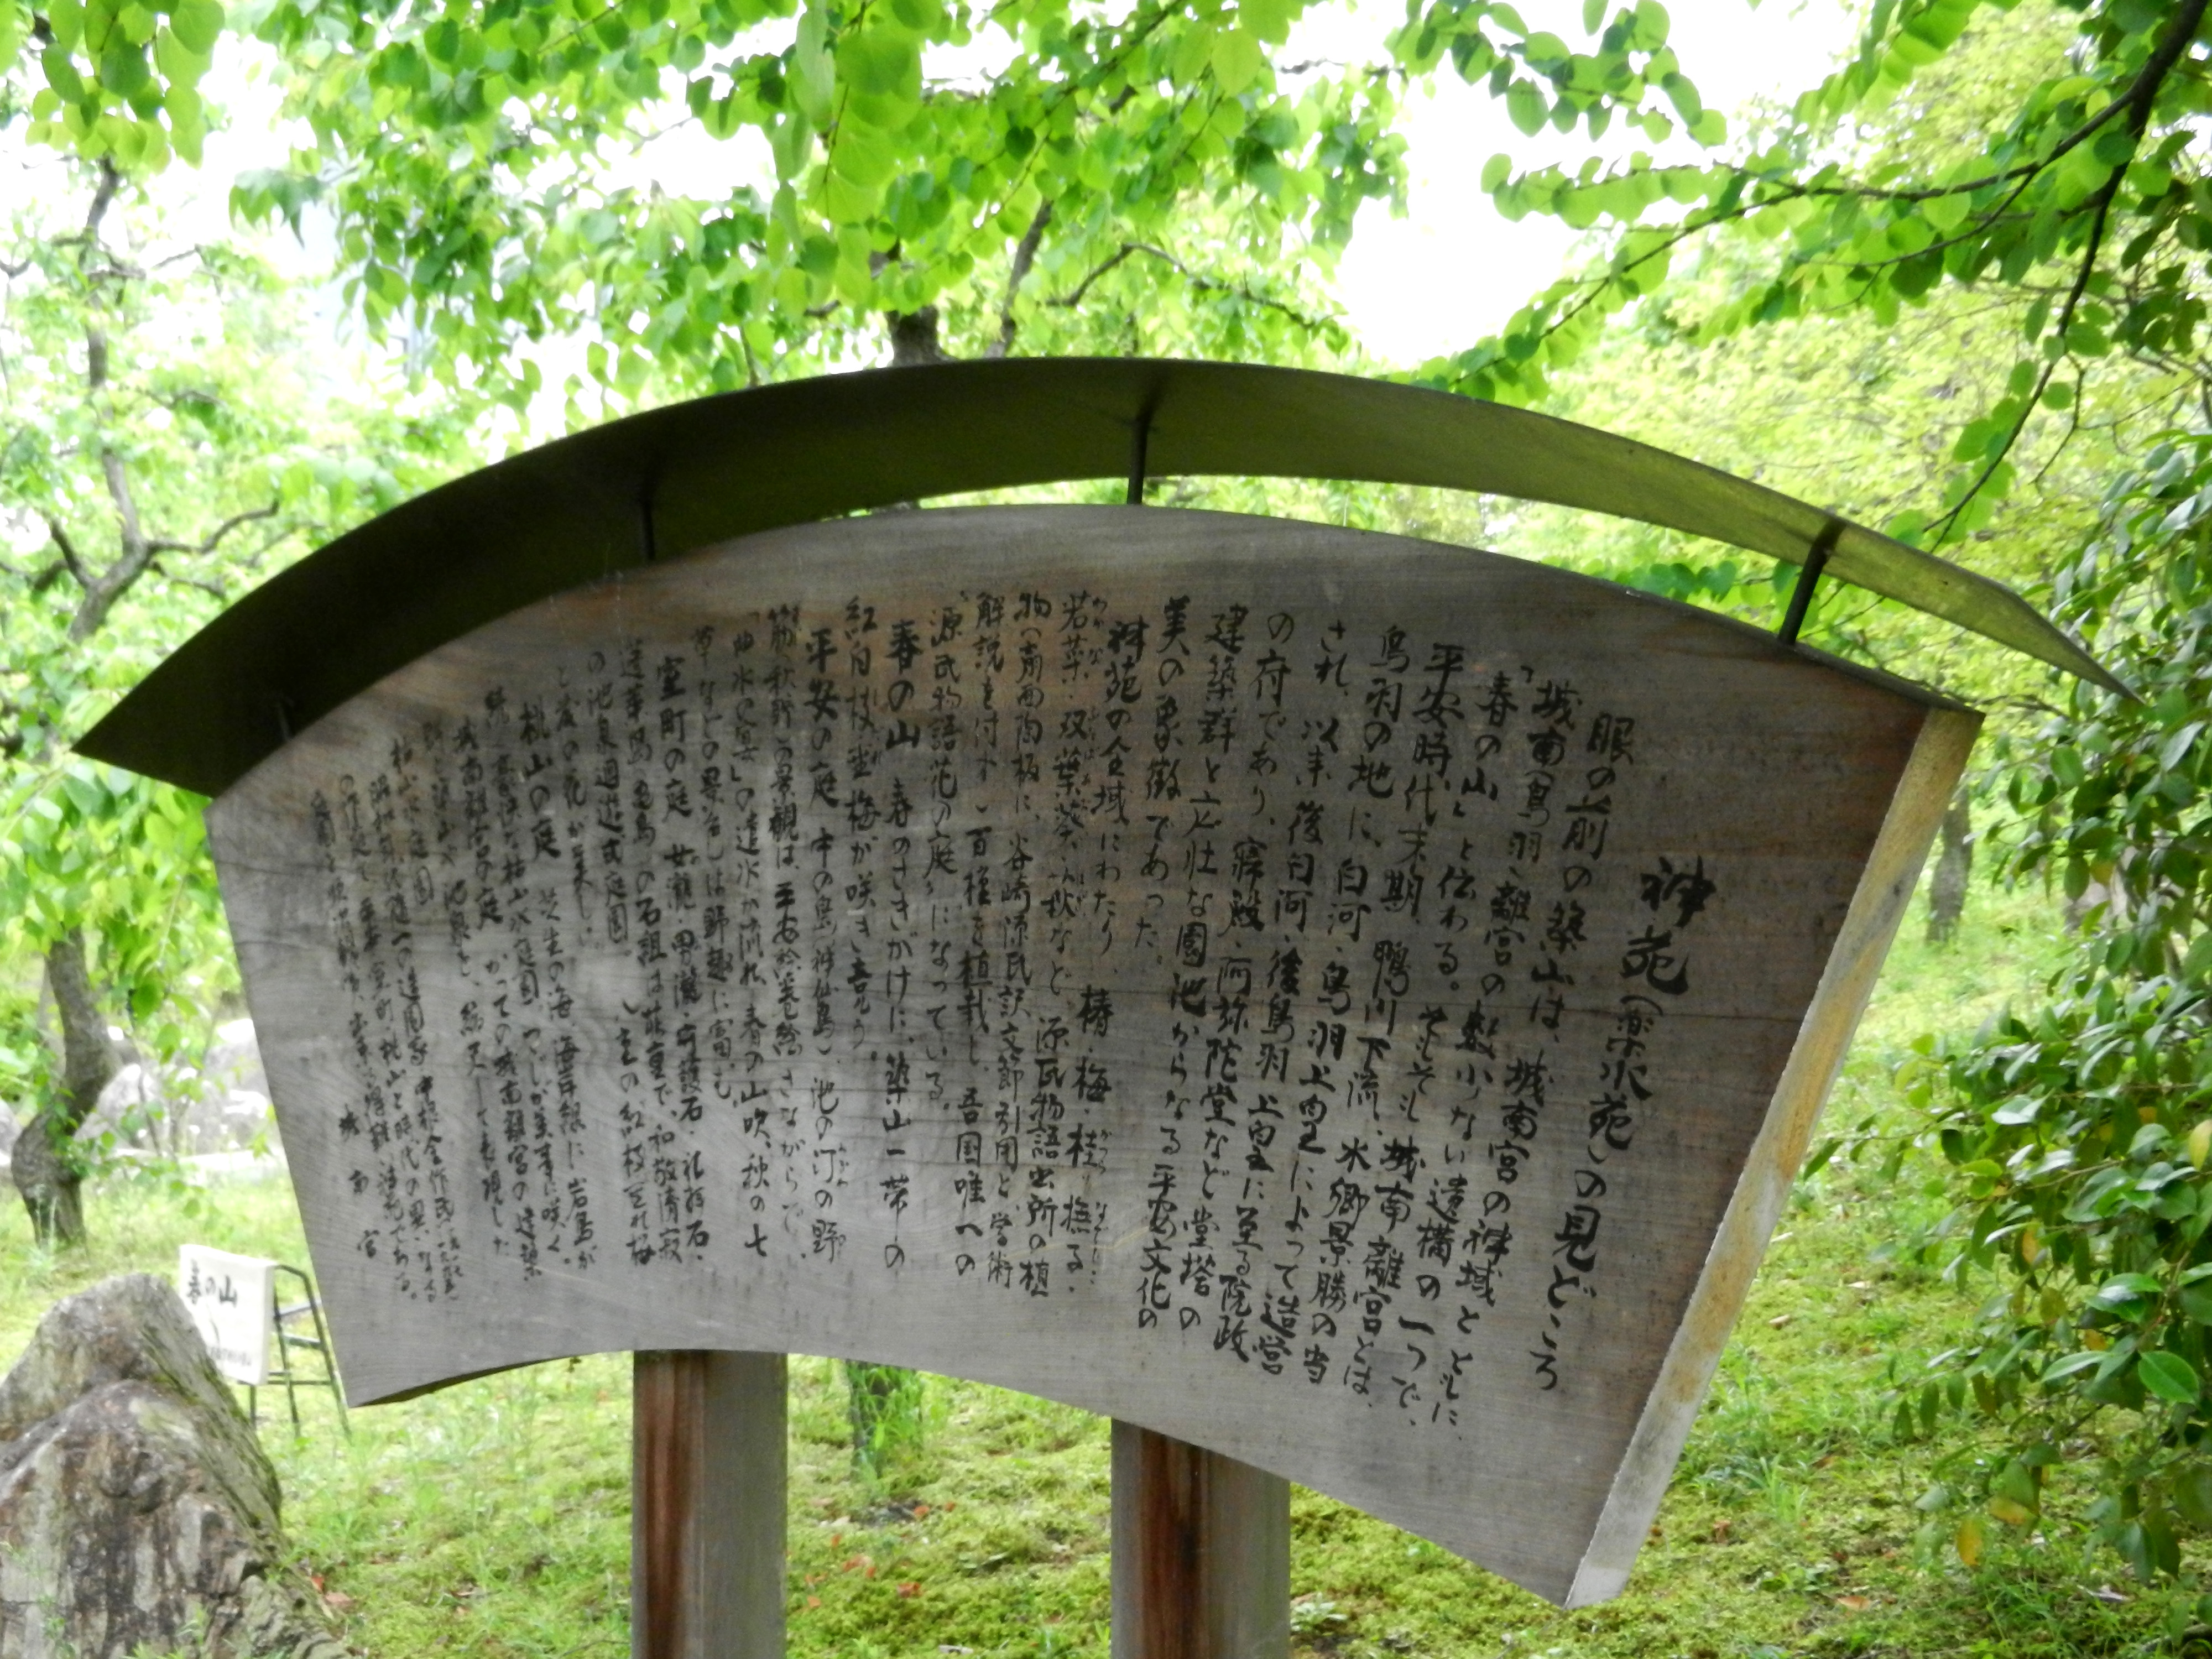 神苑(楽水苑)の見どころ
眼の前の築山は、城南宮の神域とともに、
「城南(鳥羽)離宮の数少ない遺構の一つで、
春の山」と伝わる。そもそも城南離宮とは、
平安時代末期、鴨川下流、水郷景勝の当
鳥羽の地に、白河・鳥羽上皇によって造営
され、以来、後白河・後鳥羽上皇に至る院政
の府であり、寝殿・阿弥陀堂など堂塔の
建築群と広壮な園池からなる平安文化の
美の象徴であった。
神苑の全域にわたり、椿・梅・桂・撫子・
若菜・双葉葵・萩など、源氏物語出所の植
物(扇面陶板に、谷崎源氏訳文節引用と学術
解説を付す)百種を植栽し、吾国唯一の
〝源氏物語花の庭〟になっている。
春の山 春のさきがけに、築山一帯の
紅白枝垂梅が咲き競う。
平安の庭 中の島(神仙島)、池の汀の野
筋(秋野)の景観は、平安絵巻さながらで、
「曲水の宴」の遣水が流れ、春の山吹、秋の七
草などの景色は野趣に富む。
室町の庭 女瀧・男瀧・守護石・礼拝石・
蓬莱島・亀島の石組は荘重で、和敬清寂
の池泉廻遊式庭園。
桃山の庭 芝生の海、海岸線に岩島が
城南離宮の庭 かつての城南離宮の建築
枯山水庭園
城南宮
春の山